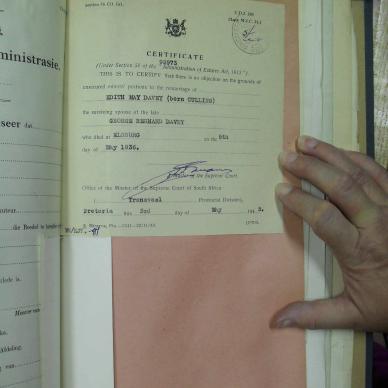 ministrasie,
seer dat
teur
die Boedel te
lede is.
Meester van
ke.
fdeling,
Section 56 G.1.
J.D.J. 288
CERTIFICATE
90973
(Under Section 56 of the "Administration of Estates Act, 1913")
THIS IS TO CERTIFY that there is no objection on the grounds of
unsecured minors' portions to the remarriage of
EDITH MAY DAVEY (born CULLING)
the surviving spouse of the late
GEORGE REGHARD DAVEY
who died at KLOBURG on the 8th
day of May 1936.
Master of the Supreme Court.
Office of the Master of the Supreme Court of South Africa
( Transvaal Provincial Division),
Pretoria this 2nd day of May 194